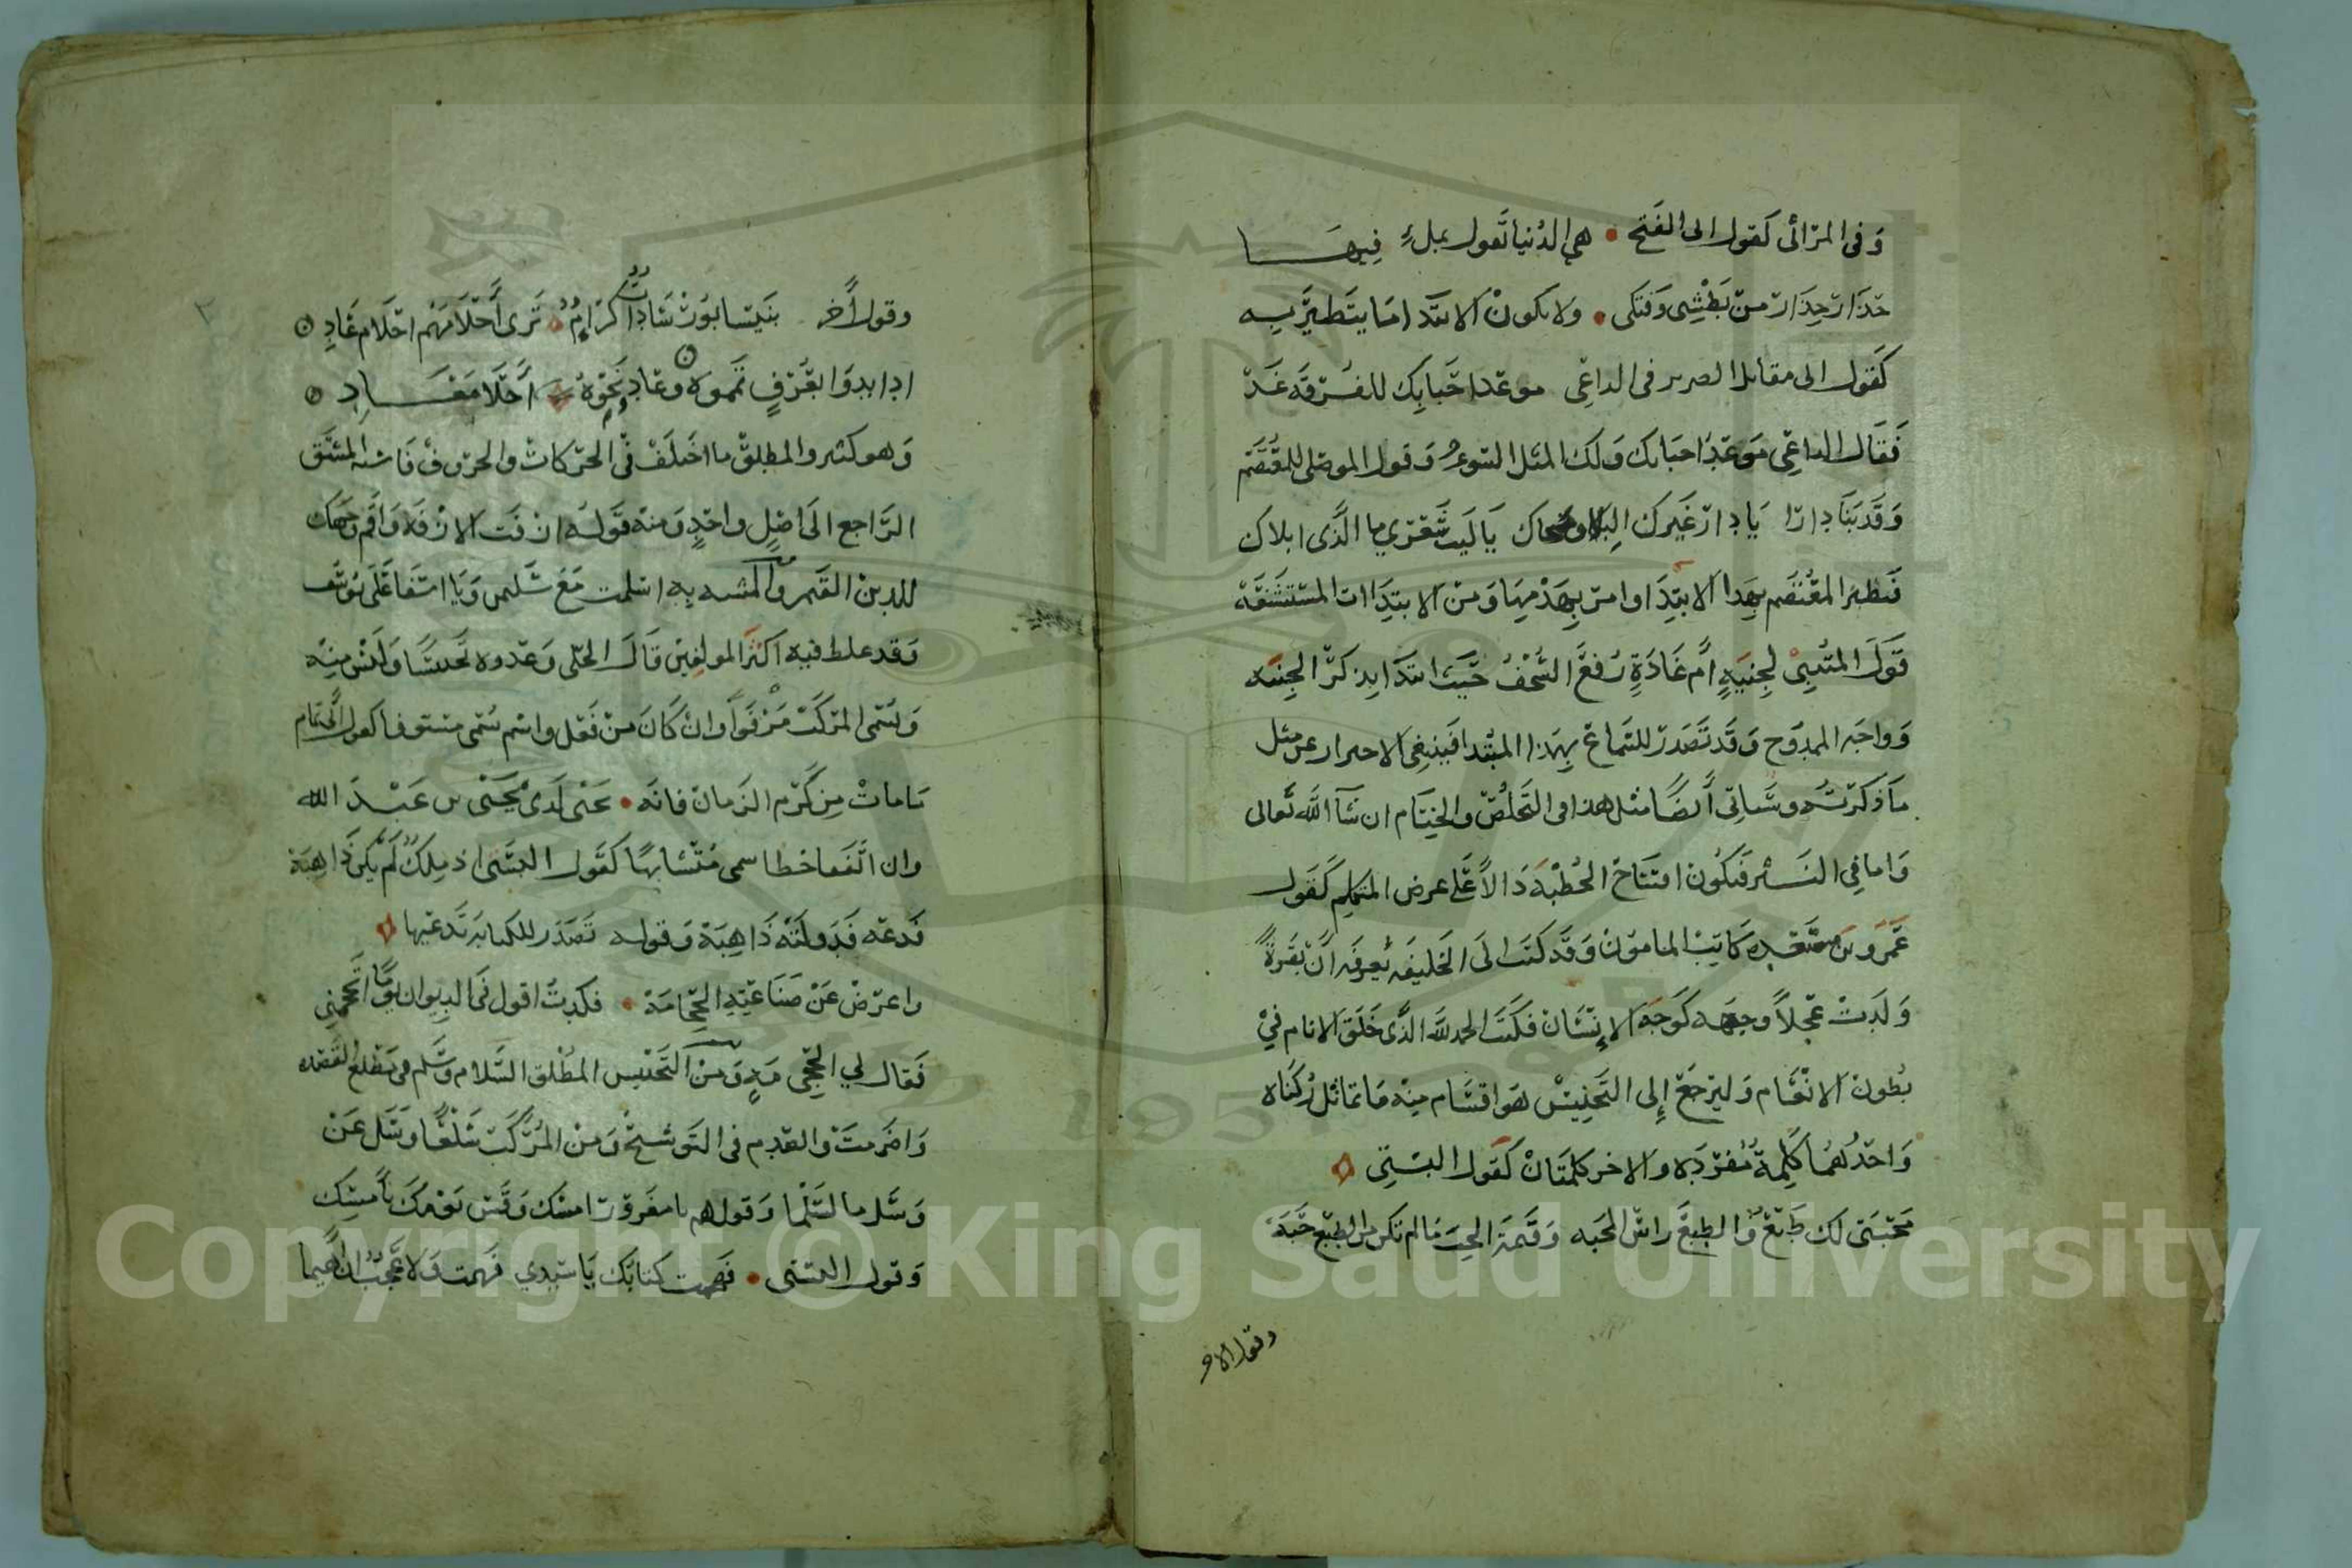 وفي المراثي كقول ابي الفتح • هي الدنيا تقول بملء فيها
حذار حذار من بطشي وفتكي • ولا يكون الابتدا مما يتطير به
كقول ابي مقاتل الضرير في الداعي موعد احبابك للفرقة غد
فقال الداعي موعد احبابك ولك المثل السوء وقول الموصلي للمعتصم
وقد بنا دارا يا دار غيرك البلا ومحاك يا ليت شعري ما الذي ابلاك
فتطير المعتصم بهذا الابتدا وامر بهدمها ومن الابتداات المستشنعة
قول المتنبي لجنية ام غادة رفع السجف حيث ابتدا بذكر الجنية
وواجه الممدوح وقد تصدر للسماع بهذا المبتدا فينبغي الاحتراز عن مثل
ما ذكرته وسياتي ايضا مثل هذا في التخلص والختام ان شآ الله تعالى
واما في النثر فيكون افتتاح الخطبة دالا على عرض المتكلم كقول
عمرو بن مسعده كاتب المامون وقد كتب الى الخليفه يعرفه ان بقرة
ولدت عجلا وجهه كوجه الانسان فكتب الحمد لله الذي خلق الانام في
بطون الانعام وليرجع إلى التجنيس هو اقسام منه ما تماثل ركناه
واحدهما كلمة مفرده والاخر كلمتان كقول البستي
محبتي لك طبع والطبع راس المحبه وقيمة الحب ما لم تكن من الطبع حبه
وقول الاخر
وقول آخر بنيسابور سادات كرام • ترى أحلامهم احلام عاد
اذا بدوا بعرف تمموه وعاد نحوه احلا معاد
وهو كثير والمطلق ما اختلف في الحركات والحروف فاشبه المشتق
الراجع الى اصل واحد ومنه قوله ازفت الازفه واقم وجهك
للدين القيم والمشبه به اسلمت مع سليمن ويا اسفا على يوسف
وقد غلط فيه اكثر المولفين قال الحلي وعدوه تجنيسا وليس منه
ويسمى المركب مرفوا وان كان من فعل واسم يسمى مستوفا كقول ابي تمام
ما مات من كرم الزمان فانه • يحيى لدى يحيى بن عبد الله
وان اتفقا خطا سمى متشابها كقول البستي اذ ملك لم يكن ذا هبة
فدعه فدولته ذاهبة وقوله تصدر للكتابة تدعيها
واعرض عن صناعته الحجامة • فكدت اقول في الديوان يوما اتحجمني
فقال لي الحجى مه ومن التجنيس المطلق السلام وسلم في مطلع القصده
واضرمت والقدم في التوشيح ومن المركب سلعا وسل عن
وسل ما لسلما وقولهم يا مغرور امسك وقس يومك بأمسك
وقول البستي • فهمت كتابك يا سيدي فهمت ولا عجب ان اهيما